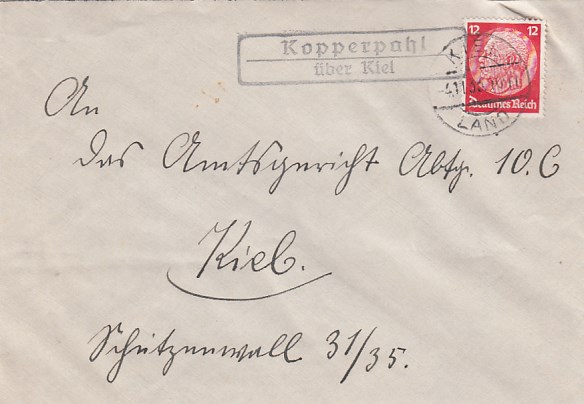 Kopperpahl
über Kiel
12 12
Deutsches Reich
K
LAND
An
das Amtsgericht Abtg. 10.C
Kiel.
Schützenwall 31/35.